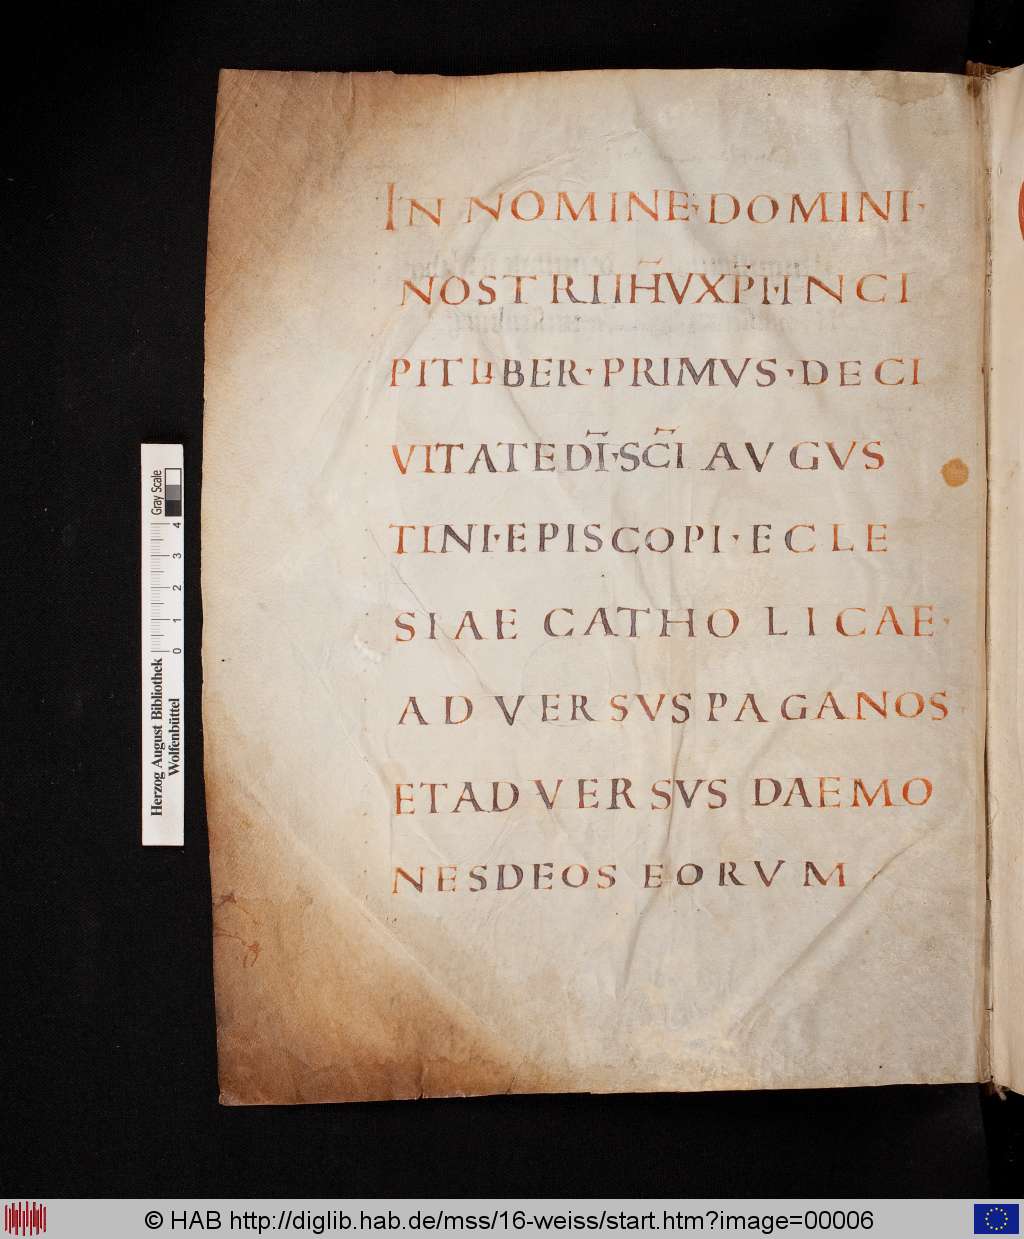 IN NOMINE·DOMINI·
NOSTRI IH̅V XP̅I·INCI
PIT LIBER·PRIMVS·DE CI
VITATE DI̅·SC̅I AVGVS
TINI·EPISCOPI·ECLE
SIAE CATHOLICAE·
ADVERSVS PAGANOS
ET ADVERSVS DAEMO
NES DEOS EORVM
Gray Scale
0 1 2 3 4
Herzog August Bibliothek
Wolfenbüttel
© HAB http://diglib.hab.de/mss/16-weiss/start.htm?image=00006